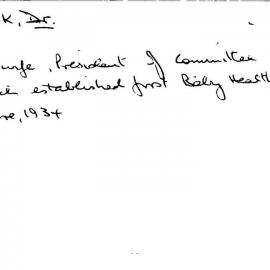 K, Dr.
wife, President of Committee
established first Baby Health
re, 1934